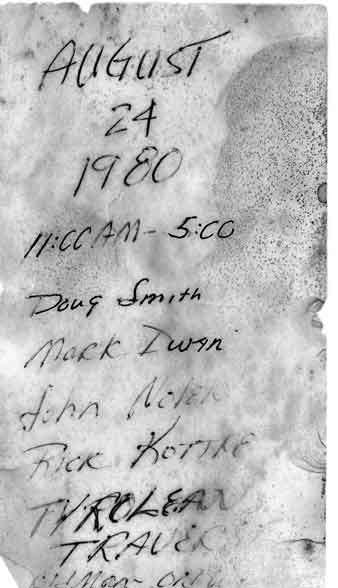 AUGUST
24
1980
11:00 AM - 5:00
Doug Smith
Mark Iwan
John Nolen
Rick Kottke
TYROLEAN
TRAVERSE